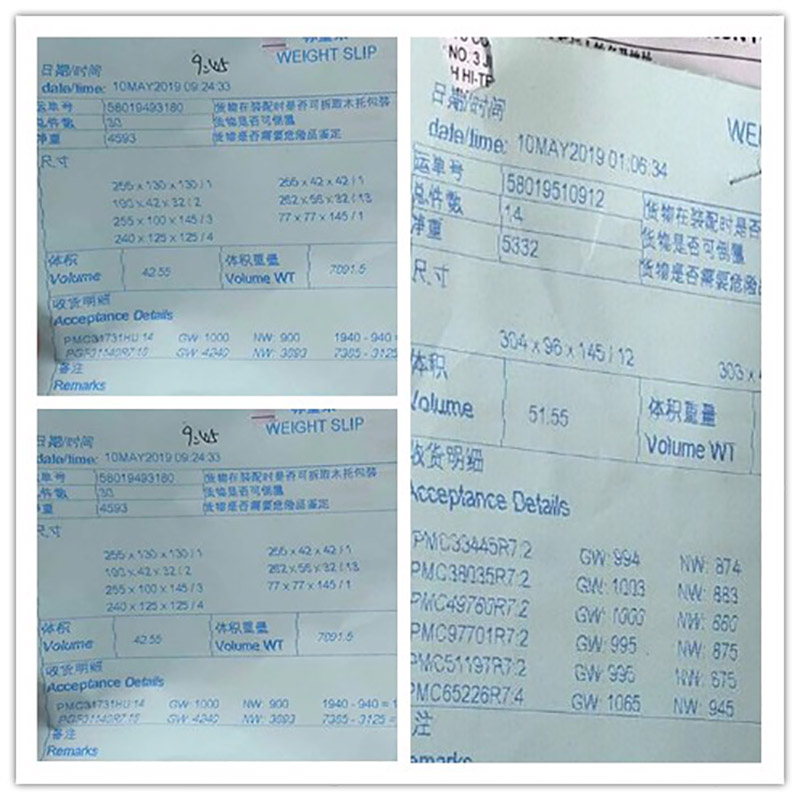 9:45
WEIGHT SLIP
日期/时间
date/time: 10MAY2019 09:24:33
运单号 58019493180 货物在装配时是否可拆取木托包装
总件数 30 货物是否可倒置
净重 4593 货物是否需要危险品鉴定
尺寸
255 x 130 x 130 / 1 255 x 42 x 42 / 1
190 x 42 x 32 / 2 262 x 56 x 32 / 13
255 x 100 x 145 / 3 77 x 77 x 145 / 1
240 x 125 x 125 / 4
体积 体积重量
Volume 42.55 Volume WT 7091.5
收货明细
Acceptance Details
PMC31731HU:14 GW: 1000 NW: 900 1940 - 940 =
GW: 4240 NW: 3693 7365 - 3125
备注
Remarks
9:45
WEIGHT SLIP
日期/时间
date/time: 10MAY2019 09:24:33
单号 58019493180 货物在装配时是否可拆取木托包装
件数 30 货物是否可倒置
重 4593 货物是否需要危险品鉴定
尺寸
255 x 130 x 130 / 1 255 x 42 x 42 / 1
190 x 42 x 32 / 2 262 x 56 x 32 / 13
255 x 100 x 145 / 3 77 x 77 x 145 / 1
240 x 125 x 125 / 4
体积 体积重量
Volume 42.55 Volume WT 7091.5
收货明细
Acceptance Details
PMC31731HU:14 GW: 1000 NW: 900 1940 - 940 =
GW: 4240 NW: 3693 7365 - 3125 =
备注
Remarks
NO. 3 J
H HI-TE
日期/时间
WEI
date/time: 10MAY2019 01:06:34
运单号 58019510912 货物在装配时是否
总件数 14 货物是否可倒置
净重 5332 货物是否需要危险
尺寸
304 x 96 x 145 / 12 303 x
体积 体积重量
Volume 51.55 Volume WT
收货明细
Acceptance Details
PMC33445R7:2 GW: 994 NW: 874
PMC38035R7:2 GW: 1003 NW: 883
PMC49760R7:2 GW: 1000 NW: 880
PMC97701R7:2 GW: 995 NW: 875
PMC51197R7:2 GW: 995 NW: 875
PMC65226R7:4 GW: 1065 NW: 945
注
emarks